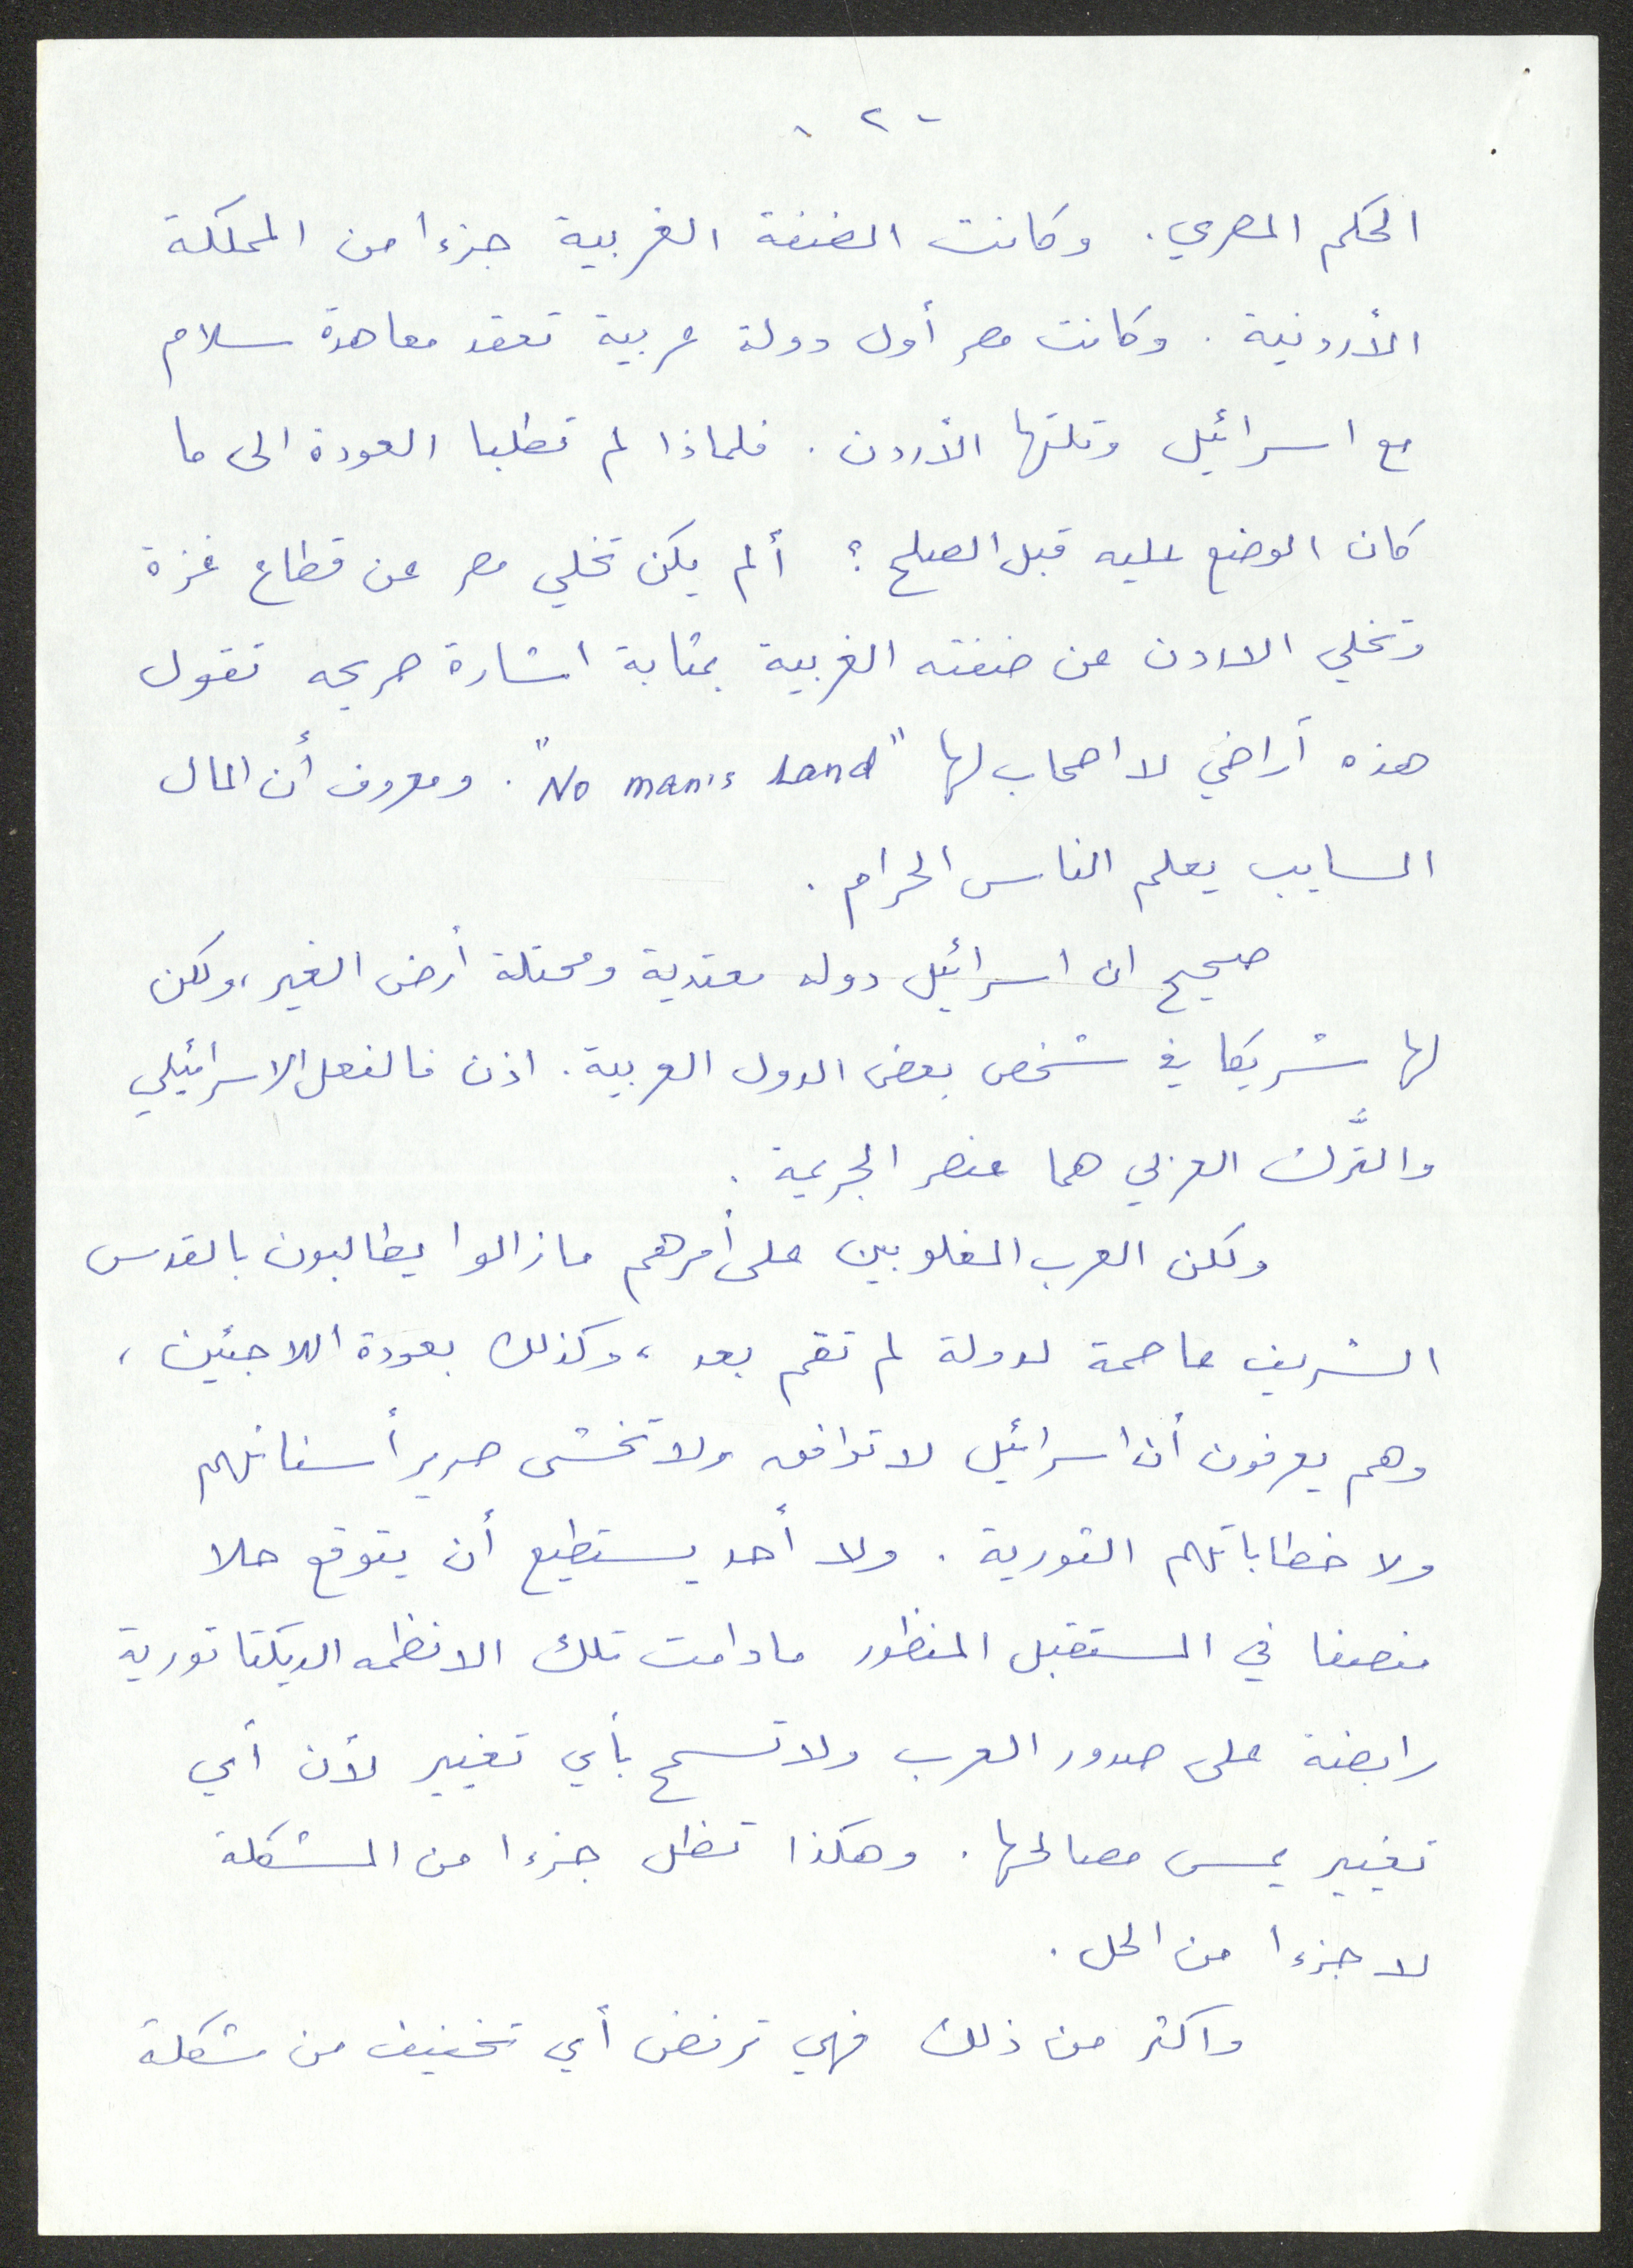 - ٢ -
الحكم المصري. وكانت الضفة الغربية جزءا من المملكة
الأردنية. وكانت مصر أول دولة عربية تعقد معاهدة سلام
مع اسرائيل وتلتها الأردن. فلماذا لم تطلبا العودة الى ما
كان الوضع عليه قبل الصلح؟ ألم يكن تخلي مصر عن قطاع غزة
وتخلي الاردن عن ضفته الغربية بمثابة اشارة صريحه تقول
هذه أراضي لا اصحاب لها "No man's Land". ومعروف أن المال
السايب يعلم الناس الحرام.
صحيح ان اسرائيل دوله معتدية ومحتلة أرض الغير، ولكن
لها شريكا في شخص بعض الدول العربية. اذن فالفعل الاسرائيلي
والتَّرك العربي هما عنصر الجريمة.
ولكن العرب المغلوبين على أمرهم مازالوا يطالبون بالقدس
الشريف عاصمة لدولة لم تقم بعد، وكذلك بعودة اللاجئين،
وهم يعرفون أن اسرائيل لا توافق ولا تخشى صرير أسنانهم
ولا خطاباتهم الثورية. ولا أحد يستطيع أن يتوقع حلا
منصفا في المستقبل المنظور مادامت تلك الانظمه الديكتاتورية
رابضة على صدور العرب ولا تسمح بأي تغيير لأن أي
تغيير يمس مصالحها. وهكذا تظل جزءا من المشكلة
لا جزءا من الحل.
واكثر من ذلك فهي ترفض أي تخفيف من مشكلة